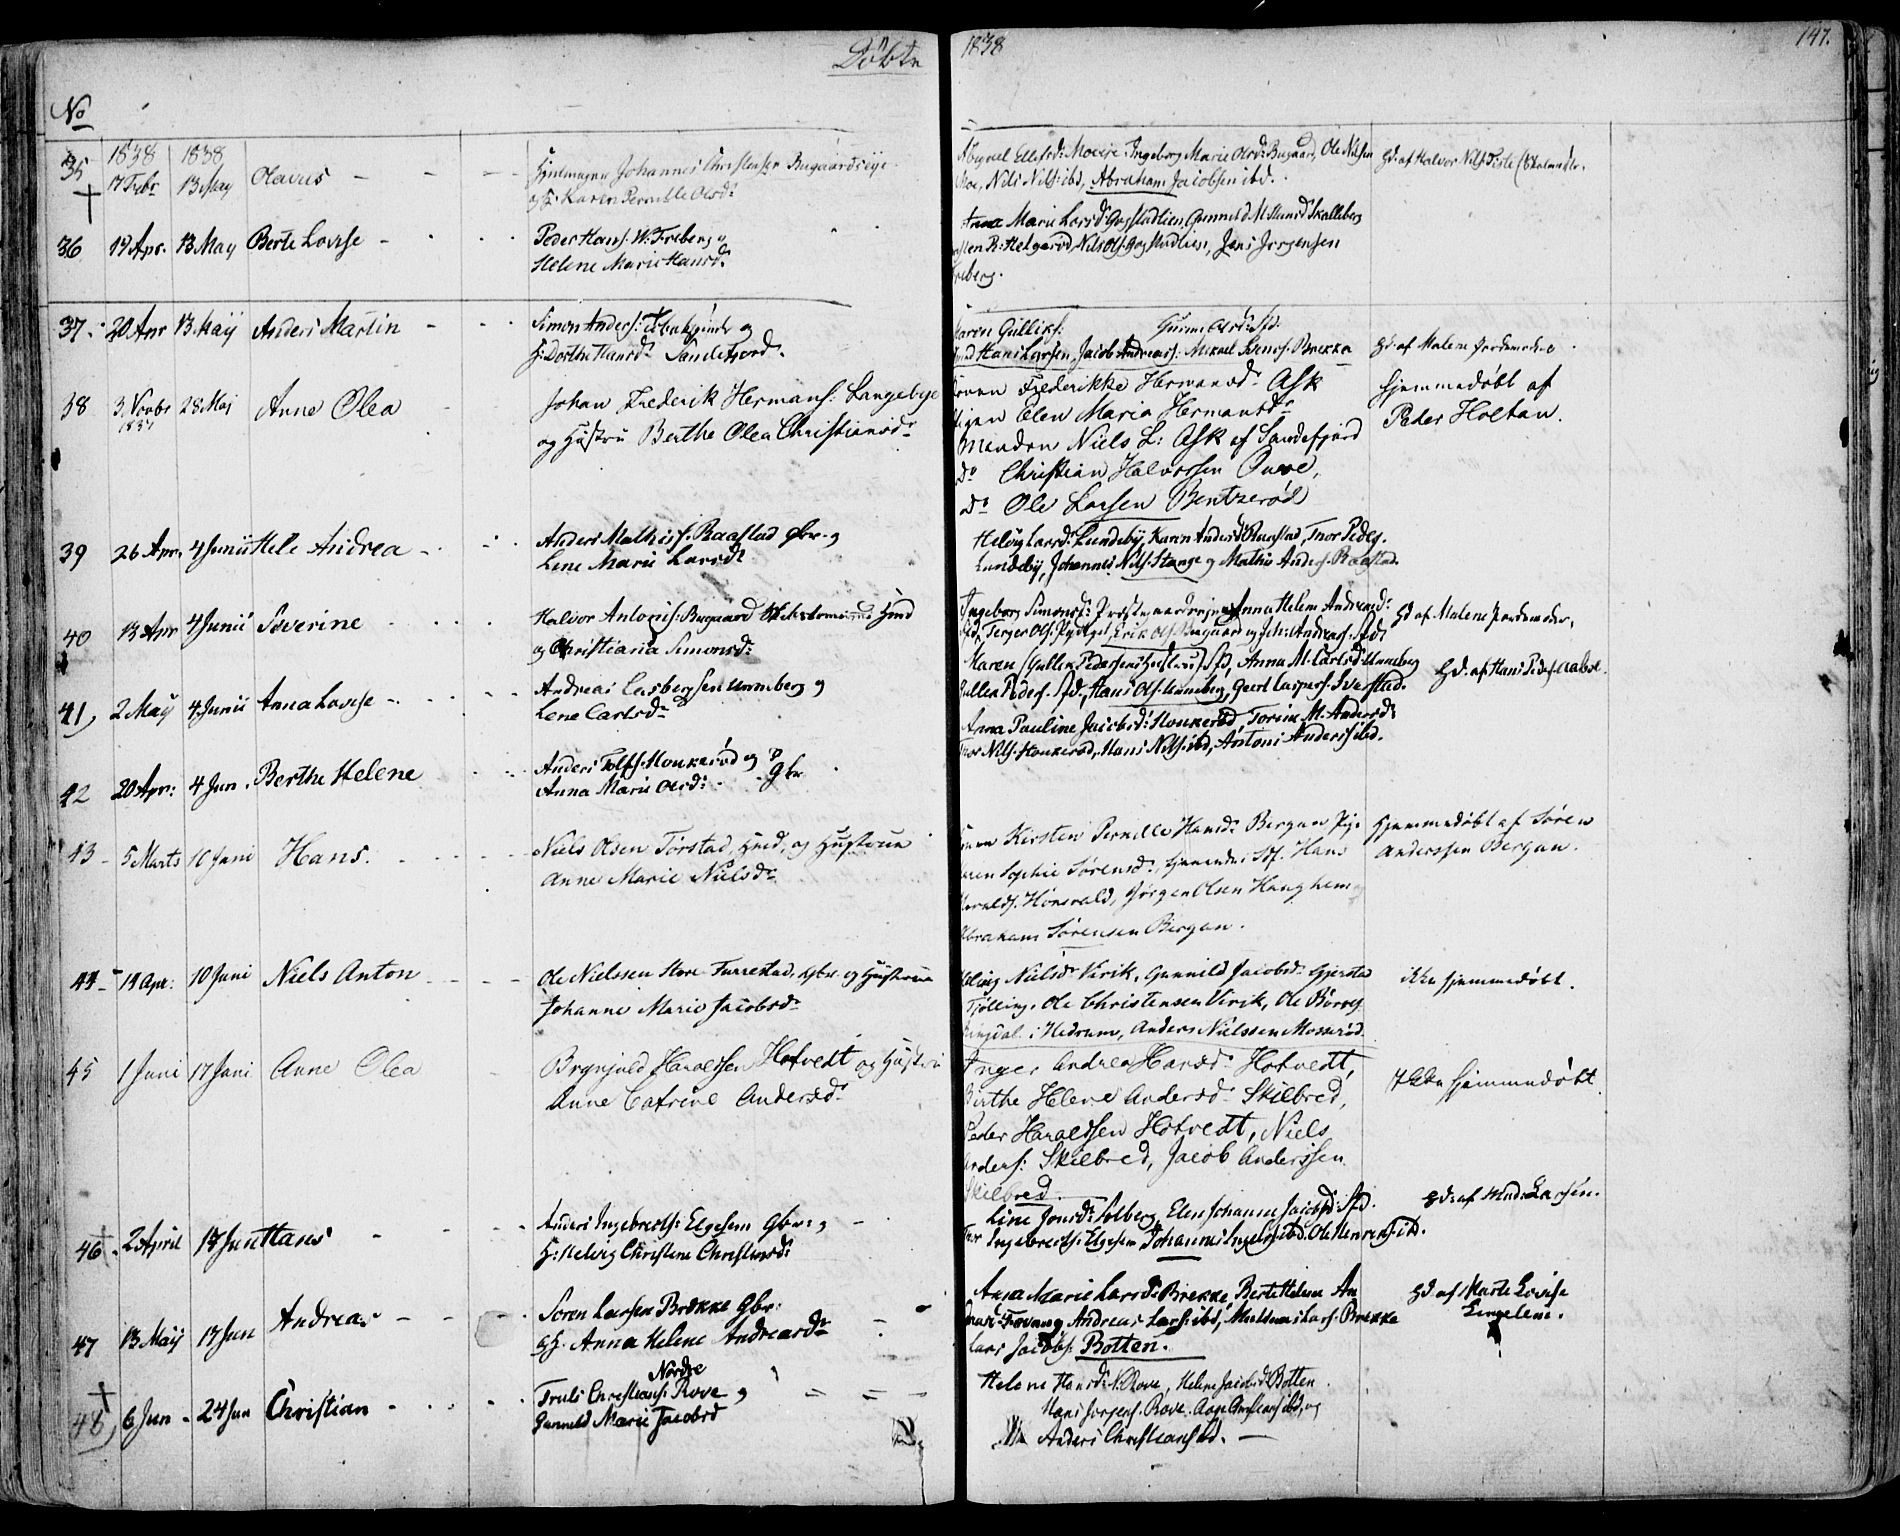 Döbte 1838 147.
No
1838 1838
35 17 Febr 13 May Olavus Hiulmager Johannes Christensen Bugaardseye
og H: Karen Pernille Olsdr
Ellefsdr: Moeeje: Ingeborg Marie Olsdr: Bugaard, Ole Nilsen
Moe, Nils Nils: ibd, Abraham Jacobsen ibd.
Hd: af Halvor Nils:
36 14 Apr. 13 May Berte Lovise Peder Hans: N: Freberg og
Helene Marie Hansd:
Anne Marie Larsd: Gogstadlien, Gunnild M. Skalleberg
Helgerød, Nils Ols: Gogstadlien, Jens Jørgensen
Freberg.
37 20 Apr 13 Maij Anders Martin Simon Anders: og
H: Dorthe Hansdr Sandefjord.
Maren Gulliks: Olsd: Sfd:
Hans Larssen, Jacob Andreass: Mikael Svends: Brekka
Hd: af Malene Jordemoder
38 3 Novbr 1837 28 Maj Anne Olea Johan Frederik Hermans: Langebye
og Hustru Berthe Olea Christiansdr
Konen Frederikke Hermansdr Ask
Pigen Elen Maria Hermansdr
Manden Niels L: Ask af Sandefjord
Do Christian Halvorsen
Do Ole Larsen Bentzerød
Hjemmedøbt af
Peder Holtan.
39 26 Apr. 4 Junii Hele Andrea Anders Mathiss: Raastad Gbr. og
Lene Marie Larsdr
Helvig Larsd: Lundeby, Karen Andersd Raastad, Thor Peders.
Lundeby, Johannes Nils: Stange og Mathis Anders: Raastad.
40 13 Apr 4 Junii Severine Halvor Antonis: Bugaard
og Christiana Simonsd:
Ingeborg Simonsd: Anna Helene Andreasd:
Sfd, Terger Ols: Erik Ols: Bugaard og Joh: Andreas: Sfd:
Hd af Malene Jordemoder,
41, 2 May 4 Junii Anna Lovise Andreas Casbersen Unneberg og
Lene Carlsdr
Maren (Gullik Pedersens Hustru) Sfd, Anna M. Carlsd: Unneberg
Gullik Peders: Sfd., Hans Ols: Unneberg, Geert Caspers: Iverstad.
Hd: af Hans Peders:
42 20 Apr: 4 Jun. Berthe Helene Anders Tolfs: Haukerød og Gbr
Anna Marie Olsd:
Anna Pauline Jacobsd: Haukerød, Torine M. Andersd:
Thor Nils: Haukerød, Hans Nils: ibd, Antoni Anders: ibd.
43 5 Marts 10 Juni Hans. Niels Olsen Torstad, Hmd, og Hustrue
Anne Marie Nielsdr
Konen Kirsten Pernille Hansdr Bergan Pige
Karen Sophie Sørensdr, Sfj. Hans
Haralds. Hønsvald, Jørgen Olsen Haughem
Abraham Sørensen Bergan.
Hjemmedøbt af Søren
Anderssen Bergan.
44 14 Apr: 10 Juni Niels Anton Ole Nielssen Store Furrestad, Gbr. og Hustrue
Johanne Marie Jacobsdr
Elling Nielsdr Virik, Gunnild Jacobsdr Gjerstad
Tjølling, Ole Christensen Virik, Ole
i Hedrum, Anders Nielssen Mosserød
ikke Hjemmedøbt.
45 1 Juni 17 Juni Anne Olea Brynjuld Haraldsen Hotvedt og Hustru
Anne Catrine Andersdr
Inger Andrea Harsdr Hotvedt,
Berthe Helene Andersdr Skilbred,
Peder Haraldsen Hotvedt, Niels
Anders: Skilbred, Jacob Anderssen
Skilbred.
Ikke Hjemmedøbt.
46 2 April 18 Jun Hans Anders Ingebreths: Elgesem Gbr: og
H: Helvig Christine Christensd:
Line Jonsd: Solberg, Elen Johanne Jacobsd: Sfd.
Thor Ingebreths: Elgesem Johannes Ingebr: ibd. Ole Henriks: ibd.
Hd: af Mads Larsen.
47 13 Maij 17 Jun Andreas Soren Larsen Brekke Gbr:
og H. Anna Helene Andreasdr
Anna Marie Larsd: Brekke, Berte Helene An
Andreas Lars: ibd, Lars: Brekke
Lars Jacobs: Botten.
Hd af Marte Lovise
Engelene.
48, 6 Jun 24 Jun Christian Nordre
Truls Christians: Rove og
Gunnild Marie Jacobsd
Helene Hansd: N. Rove, Helene Jacobsd: Botten
Hans Jørgens: Rove, Aage Christians: ibd, og
Anders Christians: ibd.